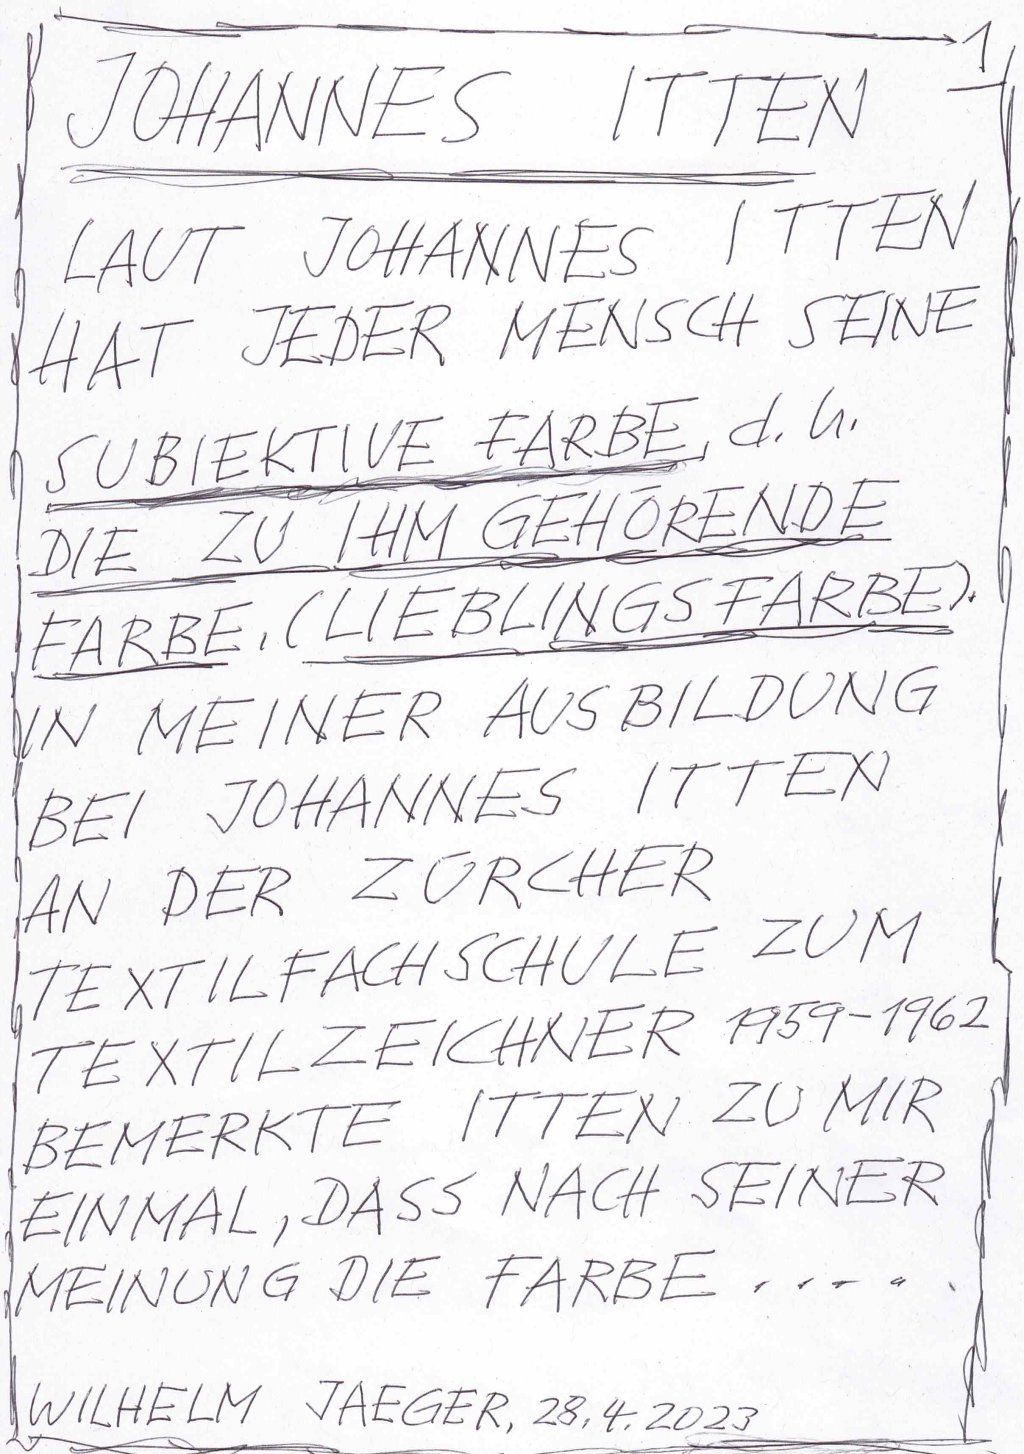 1
JOHANNES ITTEN
LAUT JOHANNES ITTEN
HAT JEDER MENSCH SEINE
SUBIEKTIVE FARBE, d.h.
DIE ZU IHM GEHÖRENDE
FARBE. (LIEBLINGSFARBE).
IN MEINER AUSBILDUNG
BEI JOHANNES ITTEN
AN DER ZÜRCHER
TEXTILFACHSCHULE ZUM
TEXTILZEICHNER 1959-1962
BEMERKTE ITTEN ZU MIR
EINMAL, DASS NACH SEINER
MEINUNG DIE FARBE .....
WILHELM JAEGER, 28.4.2023